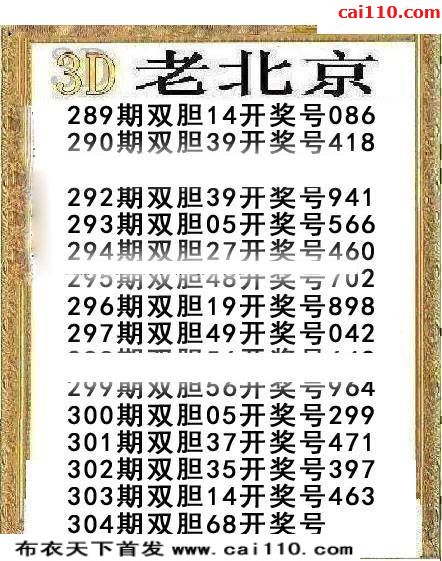 cai110.com
3D 老北京
289期双胆14开奖号086
290期双胆39开奖号418
292期双胆39开奖号941
293期双胆05开奖号566
294期双胆27开奖号460
295期双胆48开奖号702
296期双胆19开奖号898
297期双胆49开奖号042
299期双胆56开奖号964
300期双胆05开奖号299
301期双胆37开奖号471
302期双胆35开奖号397
303期双胆14开奖号463
304期双胆68开奖号
布衣天下首发 www.cai110.com